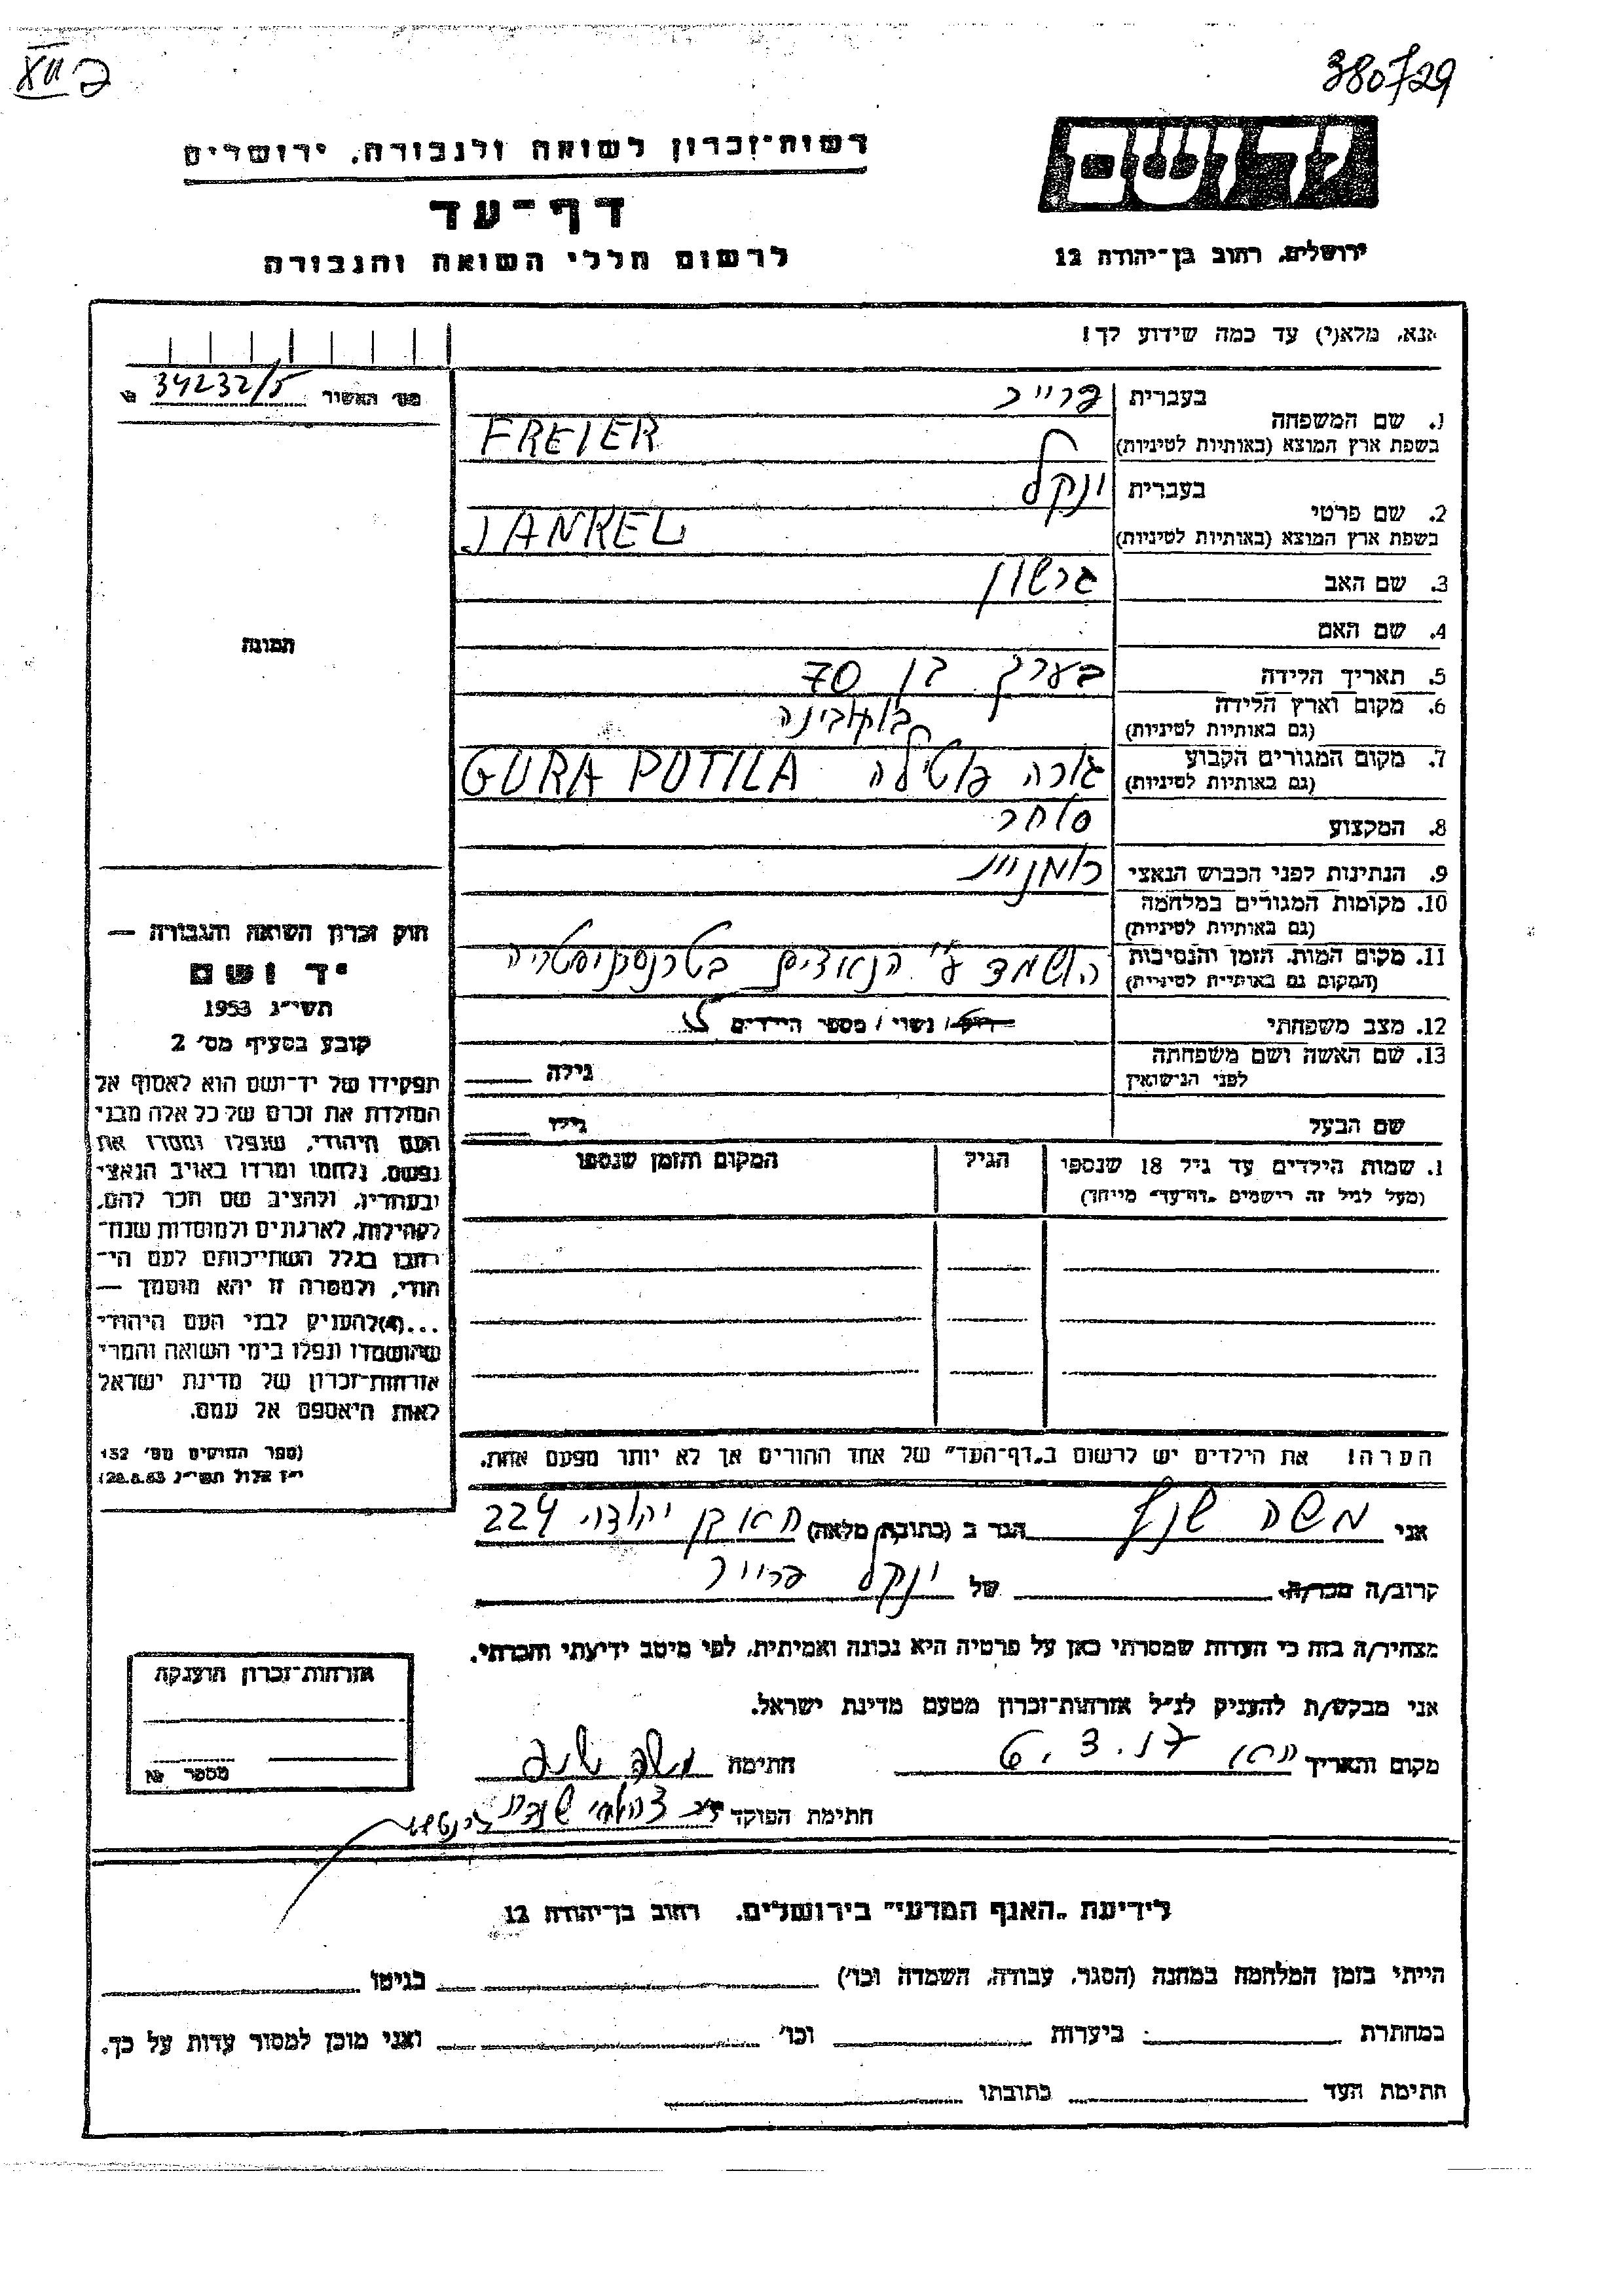 XII פ
380729
רשות־זכרון לשואה ולגבורה, ירושלים
דף־עד
לרשום חללי השואה והגבורה
יד ושם
ירושלים, רחוב בן־יהודה 12
אנא, מלא(י) עד כמה שידוע לך!
מס׳ האשור 34232/5
1. שם המשפחה
בעברית פרייר
בשפת ארץ המוצא (באותיות לטיניות) FREIER
2. שם פרטי
בעברית ינקל
בשפת ארץ המוצא (באותיות לטיניות) JANKEL
3. שם האב גרשון
4. שם האם
5. תאריך הלידה בערך בן 70
6. מקום וארץ הלידה בוקובינה
(גם באותיות לטיניות)
7. מקום המגורים הקבוע גורה פוטילה GURA PUTILA
(גם באותיות לטיניות)
8. המקצוע סוחר
9. הנתינות לפני הכבוש הנאצי רומנית
10. מקומות המגורים במלחמה
(גם באותיות לטיניות)
11. מקום המות, הזמן והנסיבות הושמד ע״י הנאצים בטרנסניסטריה
(המקום גם באותיות לטיניות)
12. מצב משפחתי רווק / נשוי / מספר הילדים
13. שם האשה ושם משפחתה
לפני הנישואין
גילה
שם הבעל
גילו
1. שמות הילדים עד גיל 18 שנספו
(מעל לגיל זה רישמים „דף־עד״ מייחד)
הגיל
המקום והזמן שנספו
הערה! את הילדים יש לרשום ב„דף־העד״ של אחד ההורים אך לא יותר מפעם אחת.
התמונה
חוק זכרון השואה והגבורה —
יד ושם
תשי״ג 1953
קובע בסעיף מס׳ 2
תפקידו של יד־ושם הוא לאסוף אל
המולדת את זכרם של כל אלה מבני
העם היהודי, שנפלו ומסרו את
נפשם, נלחמו ומרדו באויב הנאצי
ובעוזריו, ולהציב שם וזכר להם,
לקהילות, לארגונים ולמוסדות שנח־
רבו בגלל השתייכותם לעם הי־
הודי, ולמטרה זו יהא מוסמך —
...(4) להעניק לבני העם היהודי
שהושמדו ונפלו בימי השואה והמרי
אזרחות־זכרון של מדינת ישראל
לאות היאספם אל עמם.
(ספר החוקים מס׳ 132
י״ז אלול תשי״ג 28.8.53)
אני משה הגר ב (כתובת מלאה) בן יהודה 224
קרוב/ה מכר/ה של ינקל פרייר
מצהיר/ה בזה כי העדות שמסרתי כאן על פרטיה היא נכונה ואמיתית, לפי מיטב ידיעתי והכרתי.
אני מבקש/ת להעניק לנ״ל אזרחות־זכרון מטעם מדינת ישראל.
מקום והתאריך
חתימה משה
חתימת הפוקד
אזרחות־זכרון הוענקה
מספר №
לידיעת „האגף המדעי״ בירושלים, רחוב בן־יהודה 12
הייתי בזמן המלחמה במחנה (הסגר, עבודה, השמדה וכו׳) בגיטו
במחתרת ביערות וכו׳ ואני מוכן למסור עדות על כך.
חתימת העד כתובתו